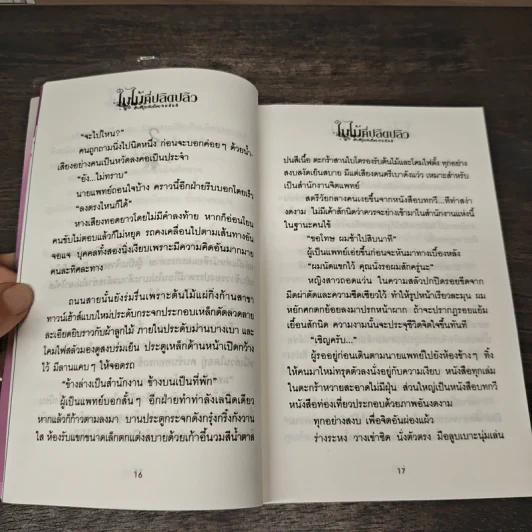 ใบไม้ที่ปลิดปลิว
"จะไปไหน?"
คนถูกถามนิ่งไปนิดหนึ่ง ก่อนจะบอกค่อยๆ ด้วยน้ำ-
เสียงอย่างคนเป็นหวัดลงคอเป็นประจำ
"ยัง...ไม่ทราบ"
นายแพทย์ถอนใจบ้าง คราวนี้อีกฝ่ายรีบบอกโดยเร็ว
"ลงตรงไหนก็ได้"
หางเสียงทอดยาวโดยไม่มีคำลงท้าย หากก็อ่อนโยน
คนขับไม่ตอบแล้วก็ไม่หยุด รถคงเคลื่อนไปตามเส้นทางอัน
จอแจ บุคคลทั้งสองนั่งเงียบเพราะมีความคิดอันมากมาย
คนละทิศละทาง
ถนนสายนั้นยังร่มรื่นเพราะต้นไม้แผ่กิ่งก้านสาขา
ทาวน์เฮ้าส์แบบใหม่ประดับกระจกประกอบเหล็กดัดลวดลาย
ละเอียดยิบราวกับผ้าลูกไม้ ภายในประดับม่านบางเบา และ
โคมไฟสลัวมองดูสงบร่มเย็น ประตูเหล็กด้านหน้าเปิดกว้าง
ไว้ มีลานแคบๆ ให้จอดรถ
"ข้างล่างเป็นสำนักงาน ข้างบนเป็นที่พัก"
ผู้เป็นแพทย์บอกสั้นๆ อีกฝ่ายทำท่าลังเลนิดเดียว
หากแล้วก็ก้าวตามลงมา บานประตูกระจกดังกรุ๋งกริ๋งกังวาน
ใส ห้องรับแขกขนาดเล็กตกแต่งสบายด้วยเก้าอี้นวมสีน้ำตาล
16
ใบไม้ที่ปลิดปลิว
ปนสีเนื้อ ตะกร้าสานใบโตรองรับต้นไม้และโคมไฟตั้ง ทุกอย่าง
สงบสงัดเยือกเย็นสบาย มีแต่เสียงดนตรีเบาดังแว่ว เหมาะสำหรับ
เป็นสำนักงานจิตแพทย์
สตรีวัยกลางคนเงยขึ้นจากหนังสือบทกวี...ทีท่าสง่า
งดงาม ไม่มีเค้าสักนิดว่าควรจะย่างเข้ามาในสำนักงานแห่งนี้
ในฐานะคนไข้
"ขอโทษ ผมช้าไปสิบนาที"
ผู้เป็นแพทย์เอ่ยขึ้นก่อนจะหันมาทางเบื้องหลัง
"ผมนัดแขกไว้ คุณนั่งรอผมสักครู่นะ"
หญิงสาวถอดแว่น ในความสลัวปกปิดรอยขีดจาก
มีดผ่าตัดและความซีดเซียวไว้ ทำให้รูปหน้าเรียวละมุน ผม
หยักศกตกย้อยลงมาปรกหน้าผาก ถ้าจะปรากฏรอยแย้ม
เยื้อนสักนิด ความงามนั้นจะประชุชีวิตจิตใจขึ้นทันที
"เชิญครับ..."
ผู้รออยู่ก่อนเดินตามนายแพทย์ไปยังห้องข้างๆ ทิ้ง
ให้คนมาใหม่ทรุดตัวลงนั่งอยู่กับความเงียบ หนังสือทุกเล่ม
ในตะกร้าหวายสะอาดไม่มีฝุ่น ส่วนใหญ่เป็นหนังสือบทกวี
หนังสือท่องเที่ยวประกอบด้วยภาพอันงดงาม
ทุกอย่างสงบ เพื่อจิตอันผ่องแผ้ว
ร่างระหง วางเข่าชิด นั่งตัวตรง มือลูบเบาะนุ่มเล่น
17